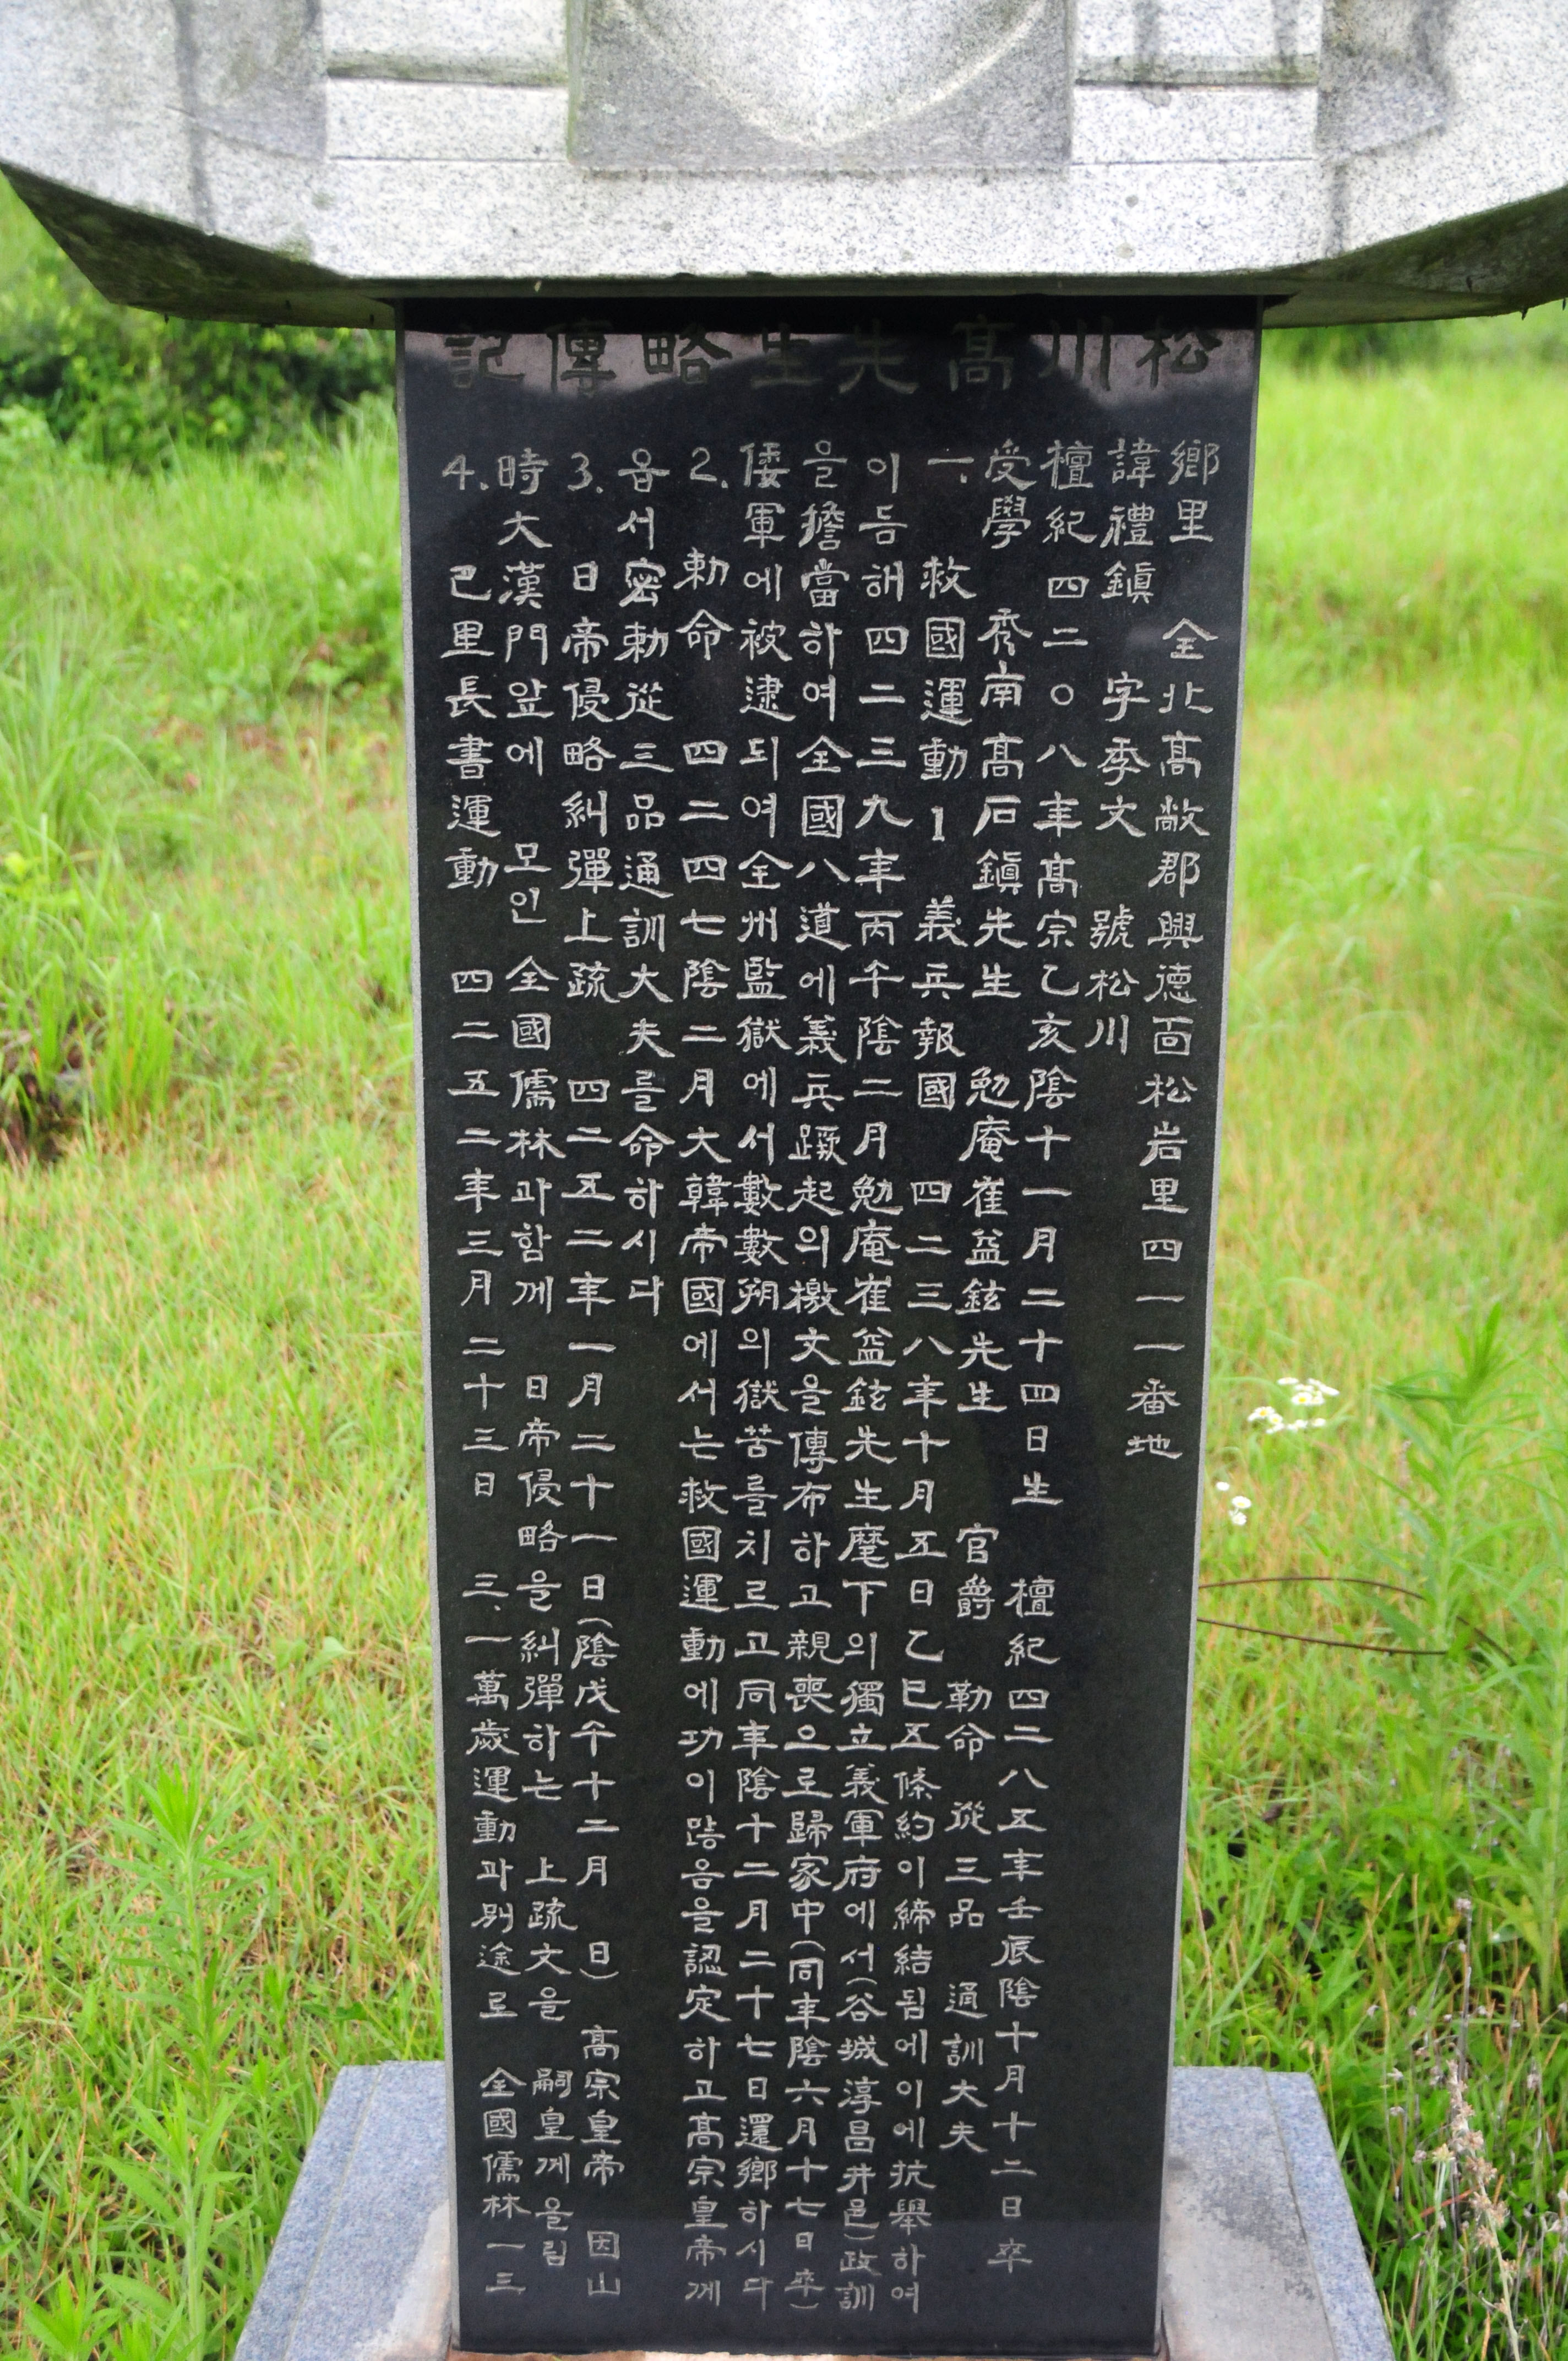 松川高先生略傳記
鄉里 全北高敞郡興德面松岩里四一一番地
諱禮鎭 字季文 號松川
檀紀四二〇八年高宗乙亥陰十一月二十四日生 檀紀四二八五年壬辰陰十月十二日卒
受學 秀南高石鎭先生 勉庵崔益鉉先生 官爵 勅命 從三品 通訓大夫
一. 救國運動 1 義兵報國 四二三八年十月五日乙巳五條約이締結됨에이에抗擧하여
이듬해四二三九年丙午陰二月勉庵崔益鉉先生麾下의獨立義軍府에서(谷城淳昌井邑)政訓
을擔當하여全國八道에義兵蹶起의檄文을傳布하고親喪으로歸家中(同年陰六月十七日卒)
倭軍에被逮되여全州監獄에서數數朔의獄苦를치르고同年陰十二月二十七日還鄕하시다
2. 勅命 四二四七陰二月大韓帝國에서는救國運動에功이많음을認定하고高宗皇帝께
옵서密勅從三品通訓大夫를命하시다
3. 日帝侵略糾彈上疏 四二五二年一月二十一日(陰戊午十二月 日) 高宗皇帝 因山
時大漢門앞에 모인 全國儒林과함께 日帝侵略을糾彈하는 上疏文을 嗣皇께올림
4. 巴里長書運動 四二五二年三月二十三日 三.一萬歲運動과別途로 全國儒林一三